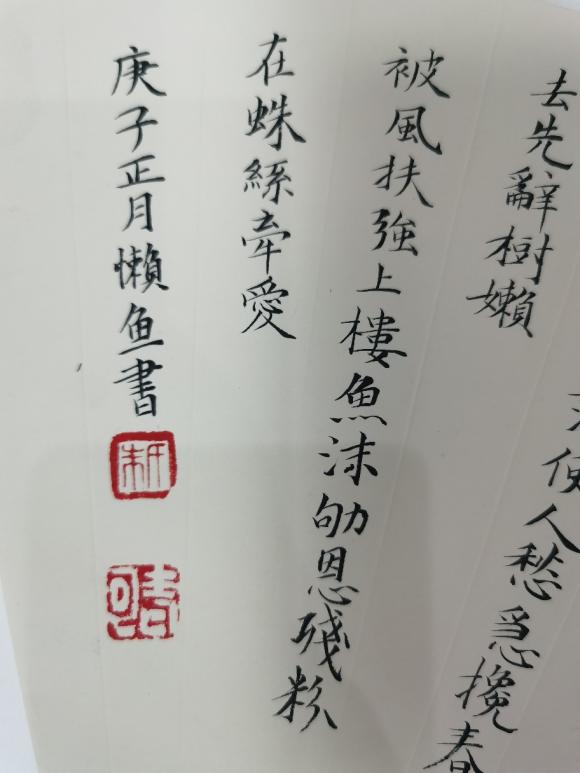 使人愁急挽春
去先辭樹嬾
被風扶強上樓魚沫劬恩殘粉
在蛛絲牽愛
庚子正月懶鱼書